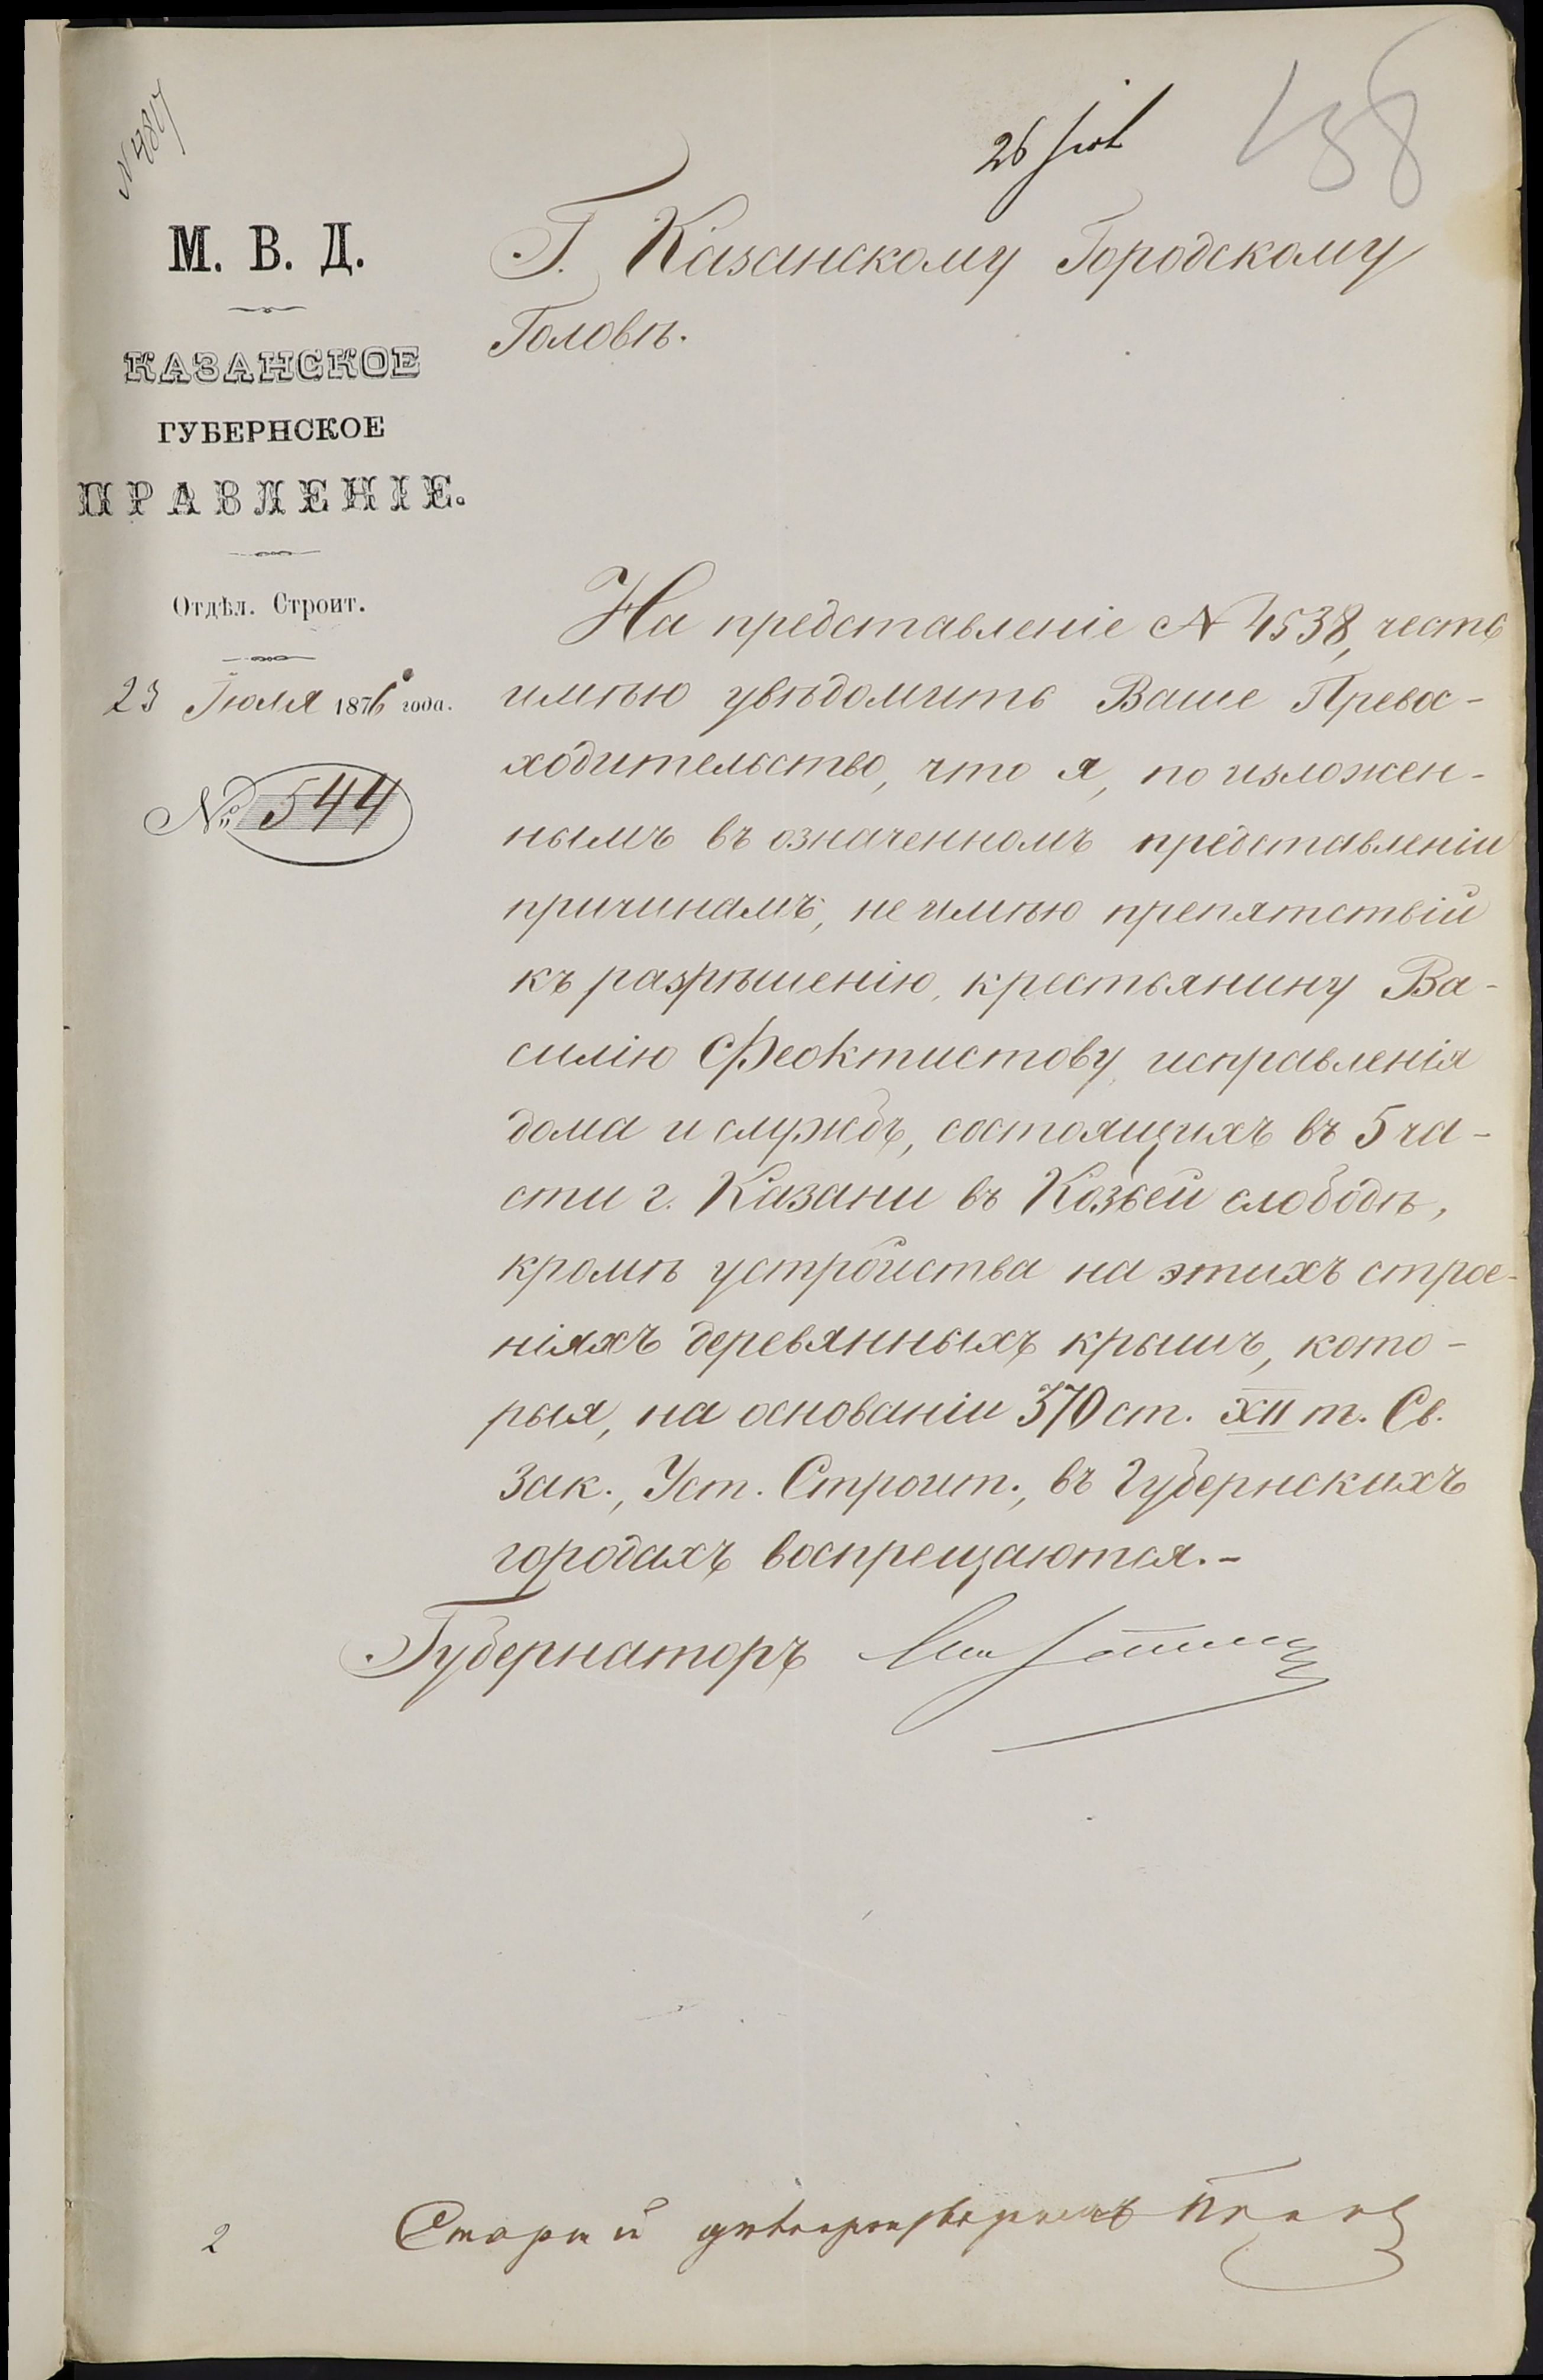 № 4817
26 июл
138
М. В. Д.
КАЗАНСКОЕ
ГУБЕРНСКОЕ
ПРАВЛЕНІЕ.
Отдѣл. Строит.
23 Іюля 1876 года.
№ 544
Г. Казанскому Городскому
Головѣ.
На представленіе № 4538, честь
имѣю увѣдомить Ваше Превос-
ходительство, что я, по изложен-
нымъ въ означенномъ представленіи
причинамъ, не имѣю препятствій
къ разрѣшенію, крестьянину Ва-
силію Феоктистову, исправленія
дома и службъ, состоящихъ въ 5 ча-
сти г. Казани въ Козьей слободѣ,
кромѣ устройства на этихъ строе-
ніяхъ деревянныхъ крышъ, кото-
рыя, на основаніи 370 ст. XII т. Св.
Зак., Уст. Строит., въ Губернскихъ
городахъ воспрещаются.-
Губернаторъ
2
Старшій дѣлопроизводитель